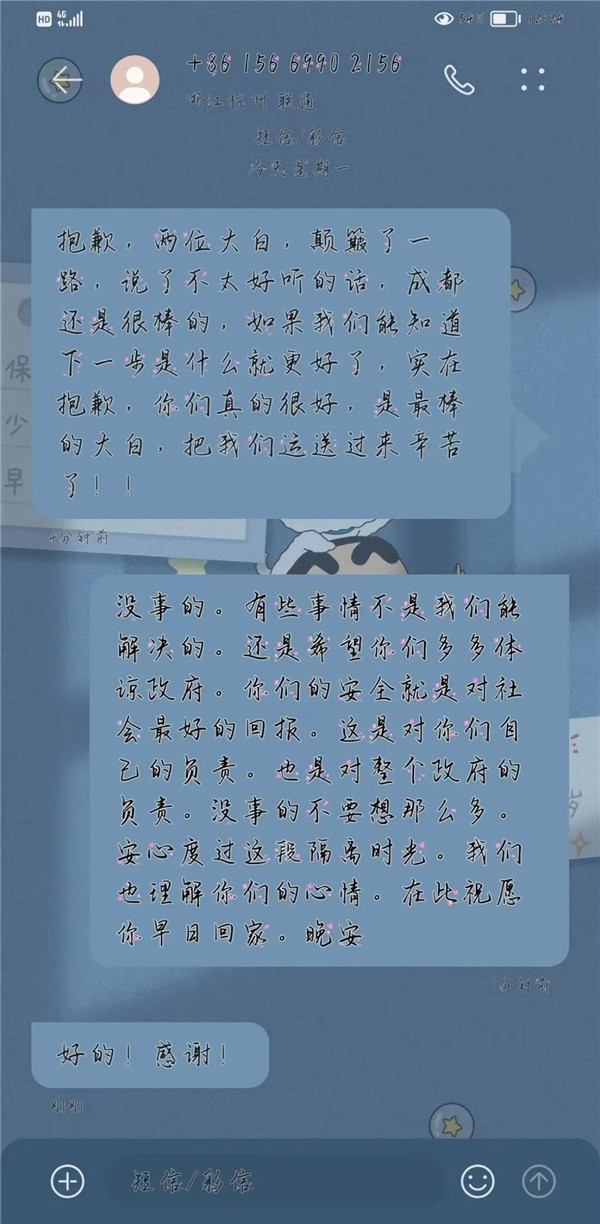 HD 4G 54% 12:24
+86 156 6990 2156
浙江杭州 联通
短信/彩信
今天 星期一
抱歉，两位大白，颠簸了一
路，说了不太好听的话，成都
还是很棒的，如果我们能知道
下一步是什么就更好了，实在
抱歉，你们真的很好，是最棒
的大白，把我们运送过来辛苦
了！！
保
少
早
4分钟前
没事的。有些事情不是我们能
解决的。还是希望你们多多体
谅政府。你们的安全就是对社
会最好的回报。这是对你们自
己的负责。也是对整个政府的
负责。没事的不要想那么多。
安心度过这段隔离时光。我们
也理解你们的心情。在此祝愿
你早日回家。晚安
1分钟前
好的！感谢！
刚刚
短信/彩信